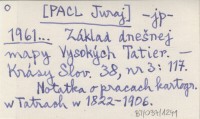 [PACL Juraj] -jp-
1961... Základ dnešnej
mapy Vysokých Tatier. —
Krásy Slov. 38, nr 3: 117.
Notatka o pracach kartogr.
w Tatrach w 1822-1906.